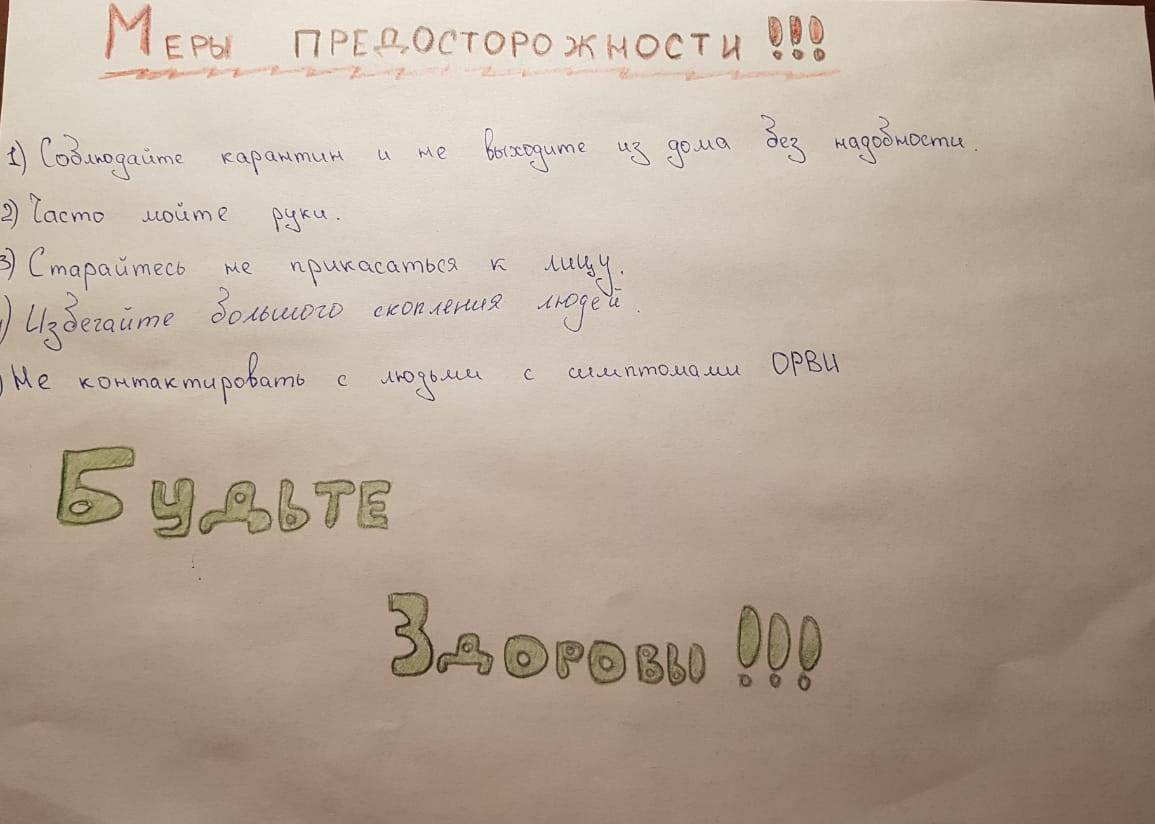 Меры предосторожности !!!
1) Соблюдайте карантин и не выходите из дома без надобности.
2) Часто мойте руки.
3) Старайтесь не прикасаться к лицу.
) Избегайте большого скопления людей.
) Не контактировать с людьми с симптомами ОРВИ
Будьте
Здоровы !!!